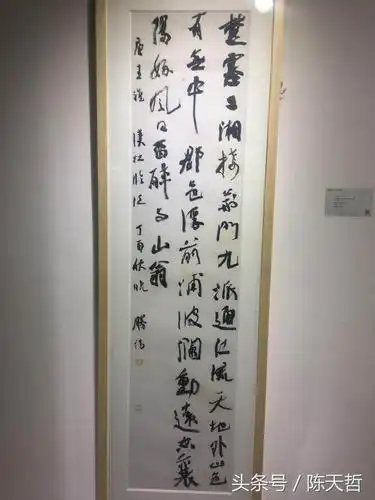 楚塞三湘接荆门九派通江流天地外山色
有無中郡邑浮前浦波瀾動遠空襄
陽好風日留醉与山翁
唐王維漢江臨泛丁酉
头条号 / 陈天哲